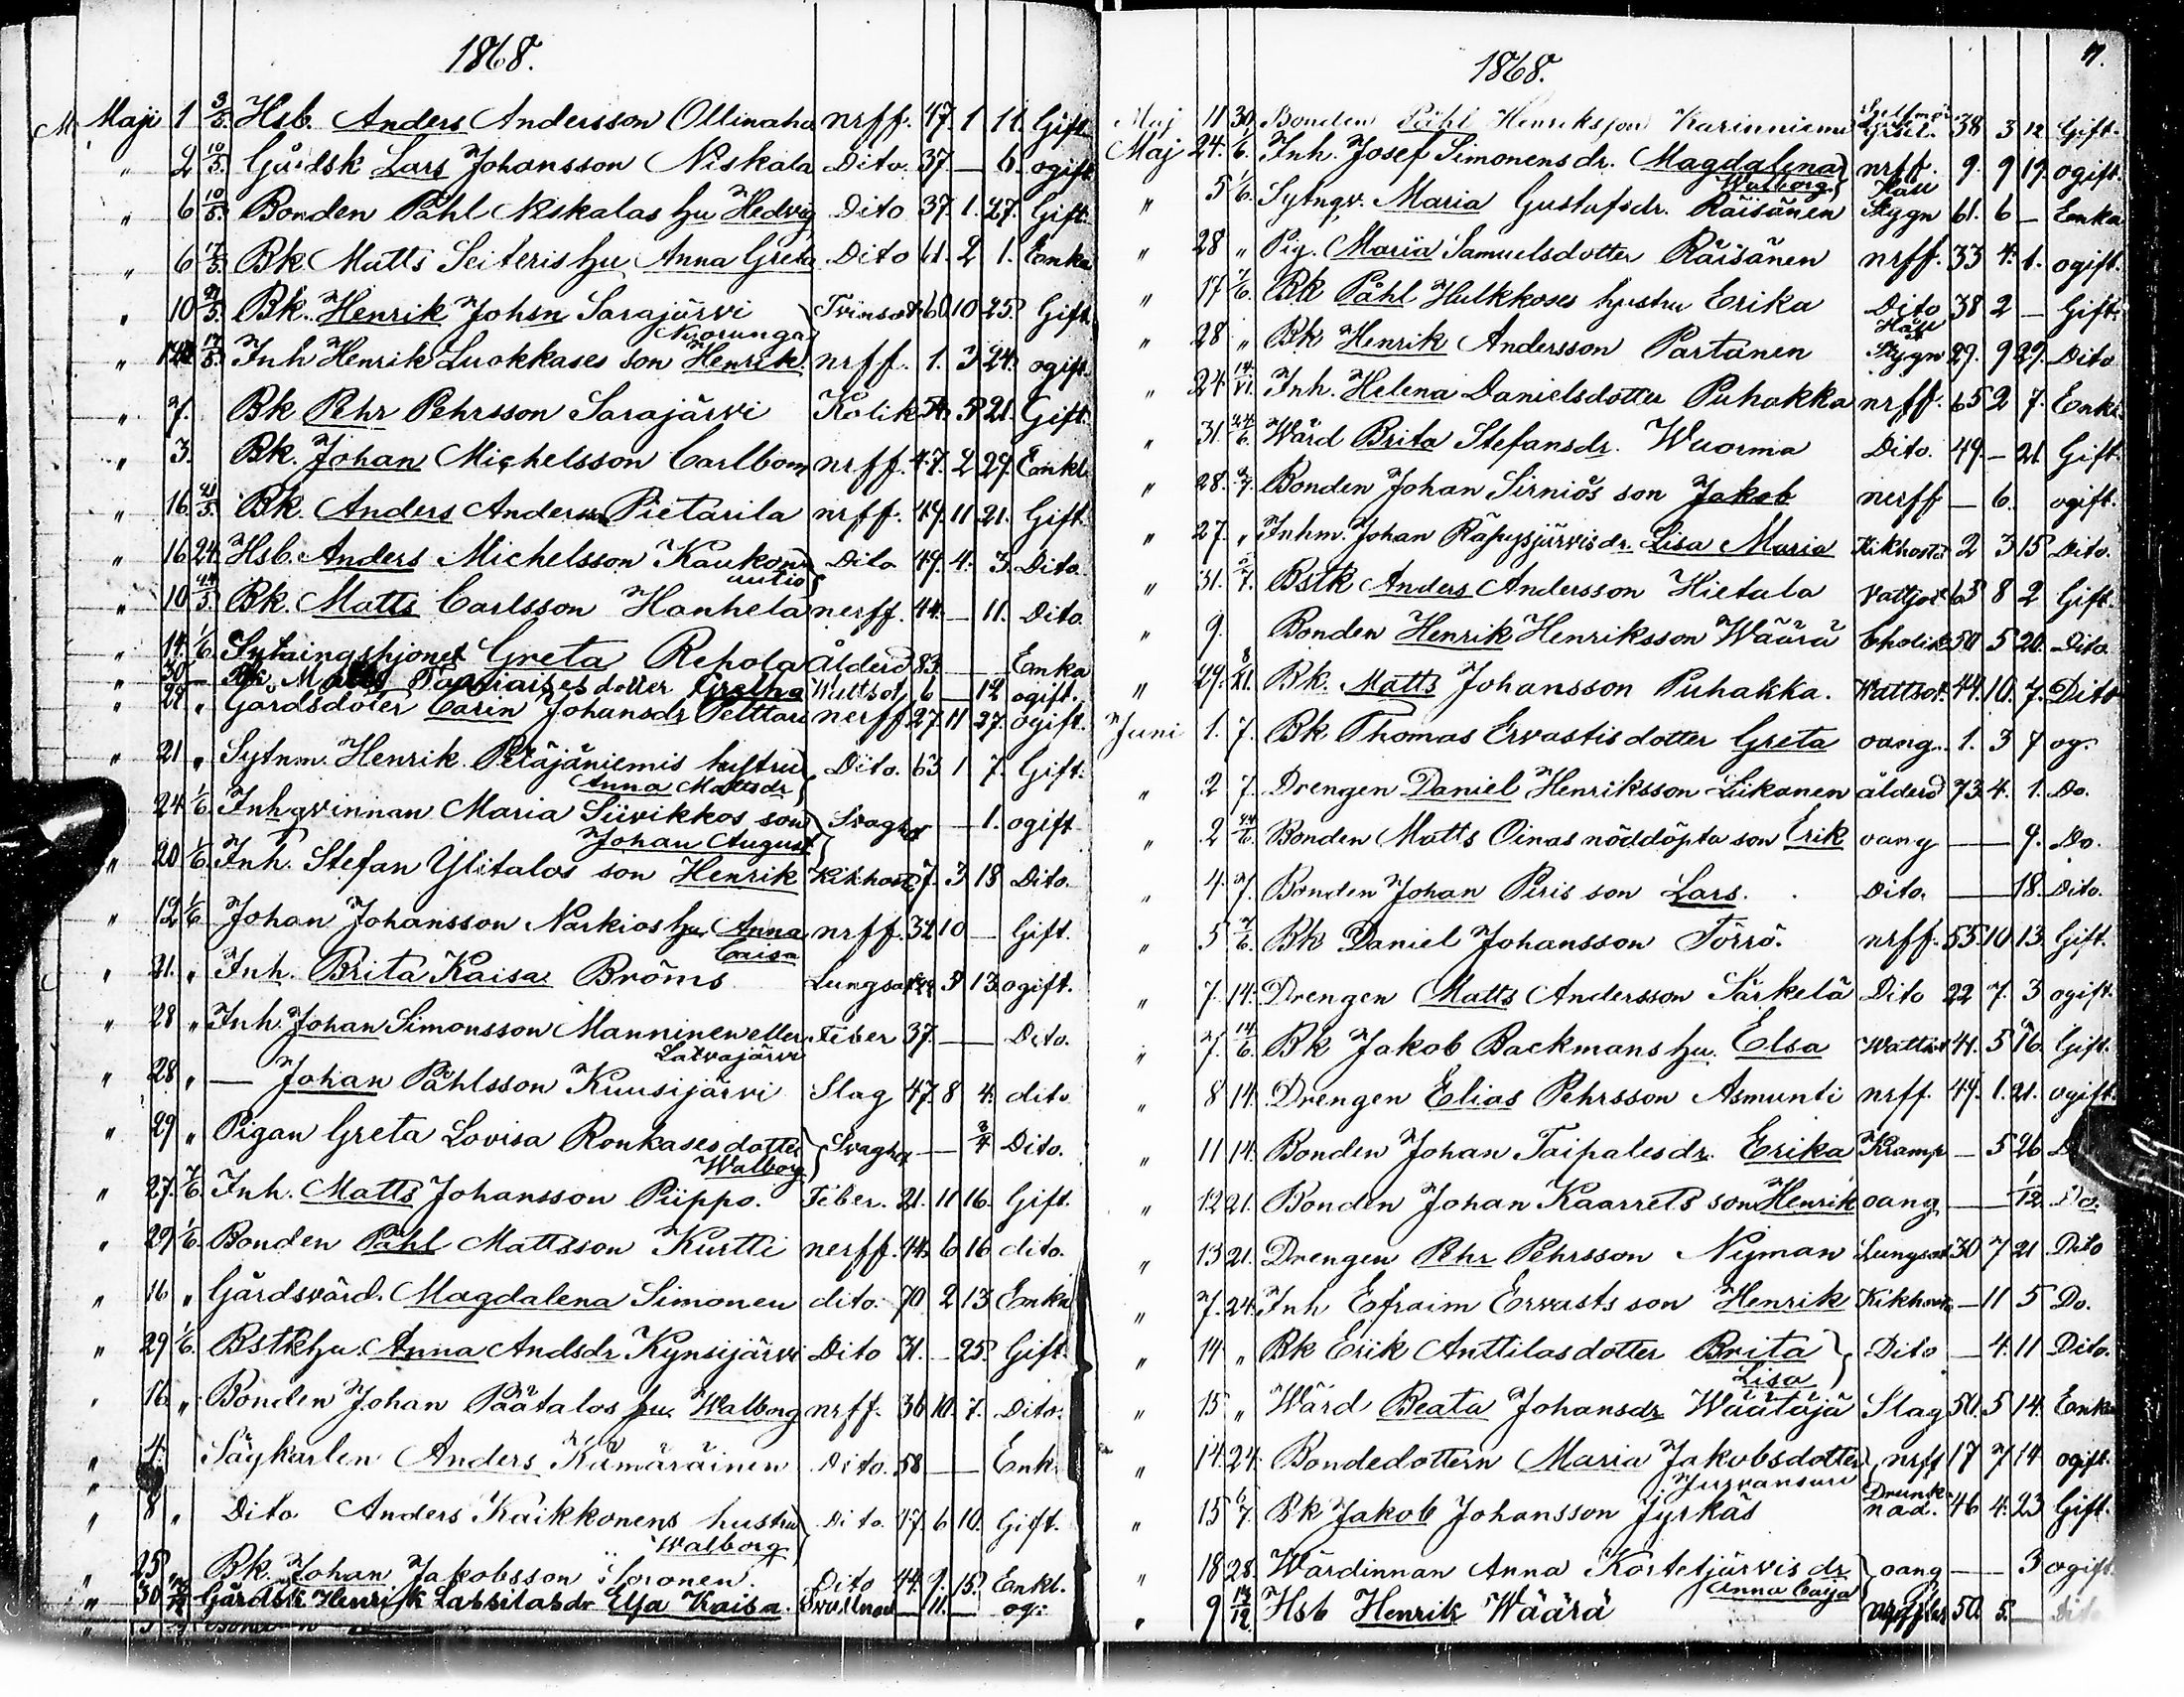 1868.
Maji 1 3/5. Hsb. Anders Andersson Ollinaho nrff. 47. 1 11. Gift.
" 2 10/5. Gårdsk Lars Johansson Niskala Dito. 37. — 6. ogift
" 6 10/5. Bonden Påhl Niskalas hu Hedvig Dito 37. 1. 27. Gift.
" 6 17/5. Bk Matts Seiteris hu Anna Greta Dito 61. 2 1. Enka
" 10 21/5. Bk. Henrik Johsn Sarajärvi 60 10 25. Gift
" 17/5. Inh Henrik Luokkases son Henrik nrff. 1. 3 24. ogift.
" 7. Bk Pehr Pehrsson Sarajärvi Kolik 54. 5 21. Gift.
" 3. Bk. Johan Michelsson Carlbom nrff. 47. 2 29. Enkl.
" 16. 21/5. Bk. Anders Anderss Pietarila nrff. 49. 11 21. Gift.
" 16 24. Hsb. Anders Michelsson Kaukon Dito 49. 4. 3. Dito
autio
" 10 24/5. Bk. Matts Carlsson Hanhela nerff. 44. — 11. Dito
" 14. 1/6. Sytningshjonet Greta Repola Ålderd 83. — Enka
" 30 — dotter Gretha Wattsot 6 — 12 ogift.
" 22 " Gårdsdoter Carin Johansdr Pelttari nerff. 27. 11 27. ogift.
" 21 " Sytnm. Henrik Peräjäniemis hustru Dito. 63 1 7. Gift.
Anna Mattsdr
24 1/6. Inhqvinnan Maria Siivikkos son Svaghet — 1. ogift
Johan August
" 20 1/6. Inh. Stefan Ylitalos son Henrik Kikhost. 7. 3 18 Dito.
" 12 1/6 Johan Johansson Narkios hu. Anna nrff. 32 10 — Gift.
Caisa
" 21. " Inh. Brita Kaisa Bröms Lungsot 5 13 ogift.
" 28 " Inh. Johan Simonsson Manninen eller Feber 37. — Dito.
Latvajärvi
" 28 " — Johan Påhlsson Kuusijärvi Slag 47. 8 4. dito
" 29 " Pigan Greta Lovisa Ronkases dotter Svaghet — 3/4 Dito.
Walborg
" 27. 7/6. Inh. Matts Johansson Piippo. Feber. 21. 11 16. Gift.
" 29 1/6. Bonden Påhl Mattsson Kurtti nerff. 44. 6 16 dito.
" 16 " Gårdsvärd. Magdalena Simonen dito. 70 2 13 Enka
" 29 1/6. Bstk hu. Anna Andsdr Kynsijärvi Dito 31. — 25. Gift.
" 16. " Bonden Johan Päätalos hu. Walborg nrff. 36 10. 7. Dito.
" 4. Sågkarlen Anders Kämäräinen Dito. 58 — Enk.
" 8 " Dito Anders Kaikkonens hustru Dito. 47. 6 10. Gift.
Walborg
" 25 " Bk. Johan Jakobsson Soronen. Dito 44. 9. 15. Enkl.
" 30 Gårdsk Henrik Lassilas dr Elsa Kaisa. — 11. — og.
1868. 7.
Maj 11 30. Bonden Påhl Henriksson Karinniemi 38 3 12 Gift.
Maj 24. 1/6. Inh. Josef Simonens dr. Magdalena nrff. 9. 9 19. ogift.
Walborg
" 5 1/6. Sytnqv. Maria Gustafsdr. Räisänen Håll Stygn 61. 6 — Enka
" 28 " Pig. Maria Samuelsdotter Räisänen nrff. 33 4. 1. ogift.
" 17 7/6. Bk Påhl Hulkkoses hustru Erika Dito 38 2 — Gift.
" 28 " Bk Henrik Andersson Partanen Håll Stygn 29. 9 29. Dito
" 24 14/6. Inh. Helena Danielsdotter Puhakka nrff. 65 2 7. Enka
" 31. 24/6. Wärd Brita Stefansdr. Wuorma Dito. 49. — 21 Gift.
" 28. 2/7. Bonden Johan Sirniös son Jakob nerff — 6. ogift.
" 27. " Inhm. Johan Räpysjärvis dr. Lisa Maria Kikhosta 2 3 15 Dito.
" 31. 2/7. Bstk Anders Andersson Hietala Vattsot 63 8 2 Gift.
" 9. Bonden Henrik Henriksson Wäärä Cholik 50 5 20. Dito.
" 29. Bk. Matts Johansson Puhakka. Wattsot. 44. 10. 7. Dito
Juni 1. 7. Bk Thomas Ervastis dotter Greta oang. 1. 3 7 og.
" 2 7. Drengen Daniel Henriksson Liikanen ålderd 73. 4. 1. Do.
" 2 24/6. Bonden Matts Oinas nöddöpta son Erik oang — 9. Do.
" 4. 2/7. Bonden Johan Piris son Lars. Dito. 18. Dito.
" 5 7/6. Bk Daniel Johansson Törrö. nrff. 55 10 13. Gift.
" 7. 14. Drengen Matts Andersson Särkelä Dito 22 7. 3 ogift.
" 7. 14/6. Bk Jakob Backmans hu. Elsa Wattsot 41. 5 16. Gift.
" 8 14. Drengen Elias Pehrsson Asmunti nrff. 49. 1. 21. ogift.
" 11 14. Bonden Johan Taipales dr. Erika Kramp — 5 26
" 12 21. Bonden Johan Kaarrets son Henrik oang — 1/12 Do.
" 13 21. Drengen Pehr Pehrsson Nyman Lungsot 30 7 21 Dito
" 7. 24. Inh Efraim Ervasts son Henrik Kikhosta — 11 5 Do.
" 14 " Bk Erik Anttilas dotter Brita Dito — 4. 11 Dito.
Lisa
" 15 " Wärd Beata Johansdr Wäätäjä Slag 50. 5 14. Enka
" 14. 24. Bondedottern Maria Jakobsdotter nrff 17 7 14 ogift.
Jurvansuu
" 15 6/7. Bk Jakob Johansson Jyrkäs Drunk nad. 46 4. 23 Gift.
" 18 28. Wärdinnan Anna Kortetjärvis dr oang — 3 ogift
Anna Caja
" 9 13/12. Hsb Henrik Wäärä 50. 5. — Dito